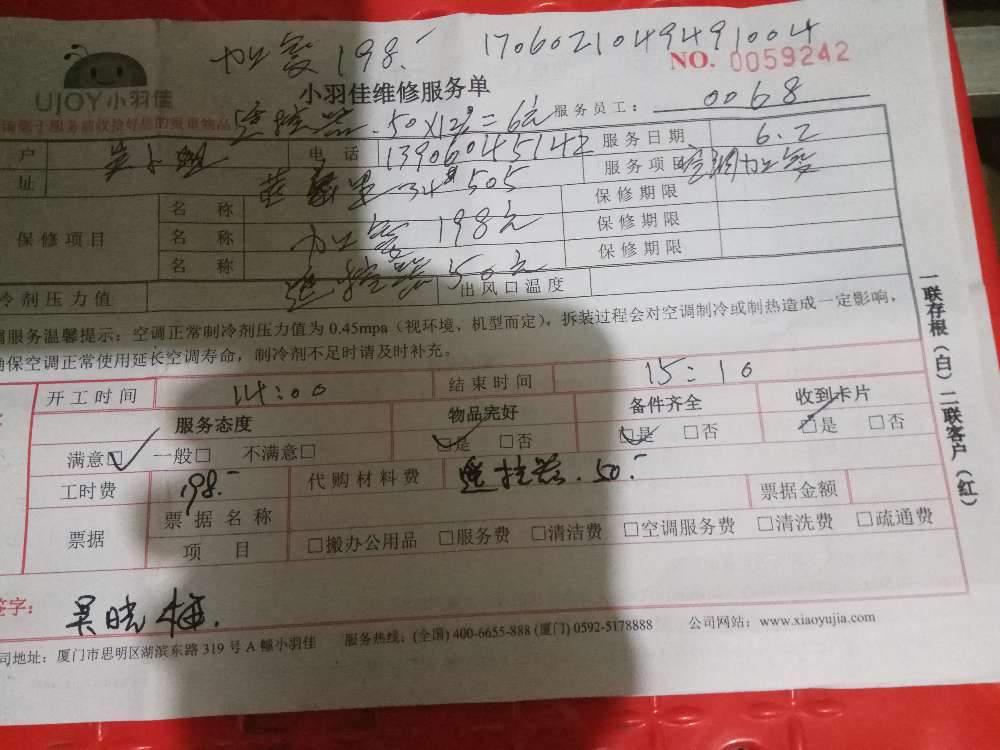 198.- 17060210494910004
NO. 0059242
UJOY小羽佳
小羽佳维修服务单
50 X12 = 6元 服务员工: 0068
户 电 话 13906045142 服务日期 6.2
址 34 505 服务项目 空调加氟
保修项目 名 称 保修期限
名 称 加氟 198元 保修期限
名 称 遥控器 50元 保修期限
冷剂压力值 出风口温度
调服务温馨提示:空调正常制冷剂压力值为 0.45mpa(视环境、机型而定),拆装过程会对空调制冷或制热造成一定影响,
确保空调正常使用延长空调寿命,制冷剂不足时请及时补充。
开工时间 14:00 结束时间 15:10
服务态度 物品完好 备件齐全 收到卡片
满意□ 一般□ 不满意□ □是 □否 □是 □否 □是 □否
工时费 198.- 代购材料费 遥控器.50.- 票据金额
票据 票据名称
项 目 □搬办公用品 □服务费 □清洁费 □空调服务费 □清洗费 □疏通费
签字: 吴晓梅.
司地址:厦门市思明区湖滨东路 319 号 A 幢小羽佳 服务热线:(全国) 400-6655-888 (厦门) 0592-5178888 公司网站:www.xiaoyujia.com
一联存根(白)二联客户(红)